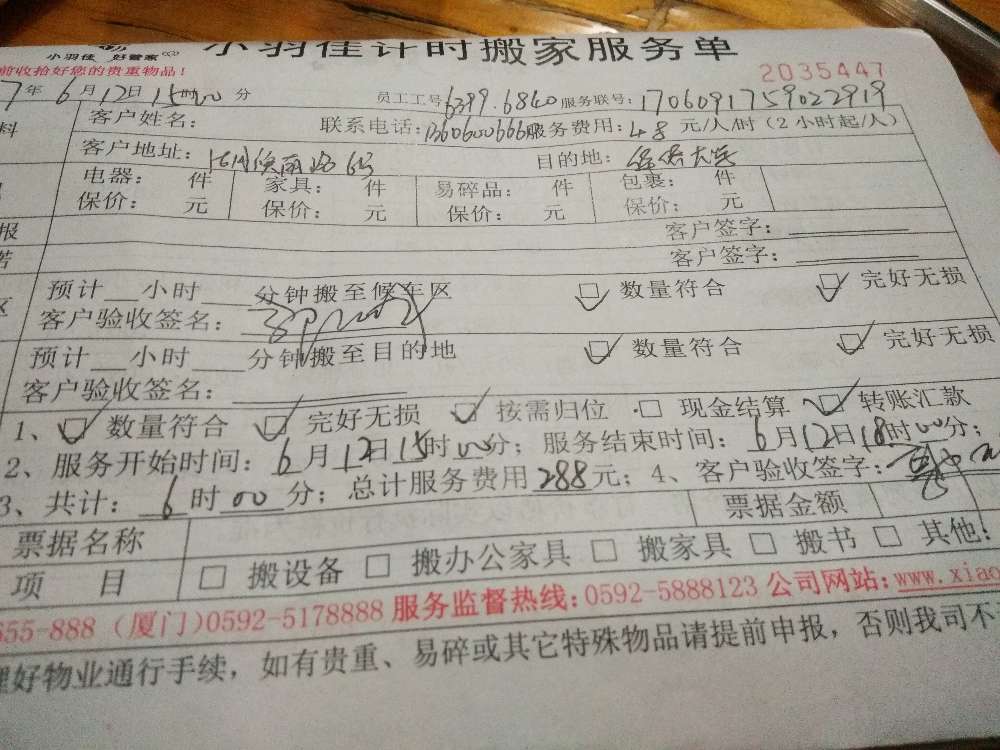 小羽佳计时搬家服务单
小羽佳 好管家
前收拾好您的贵重物品！
2035447
7年6月12日15时00分 员工工号6399.6840 服务联号：1706091759022919
料
客户姓名： 联系电话：13606006668 服务费用：48元/人/时（2小时起/人）
客户地址： 目的地：
电器： 件 家具： 件 易碎品： 件 包裹： 件
保价： 元 保价： 元 保价： 元 保价： 元
报 客户签字：
客户签字：
预计 小时 分钟搬至候车区 数量符合 完好无损
区 客户验收签名：
预计 小时 分钟搬至目的地 数量符合 完好无损
客户验收签名：
1、 数量符合 完好无损 按需归位 现金结算 转账汇款
2、服务开始时间：6月12日15时00分；服务结束时间：6月12日18时00分；
3、共计：6时00分；总计服务费用288元；4、客户验收签字：
票据名称 票据金额
项 目 搬设备 搬办公家具 搬家具 搬书 其他：
655-888（厦门）0592-5178888 服务监督热线：0592-5888123 公司网站：www.xiao
理好物业通行手续，如有贵重、易碎或其它特殊物品请提前申报，否则我司不